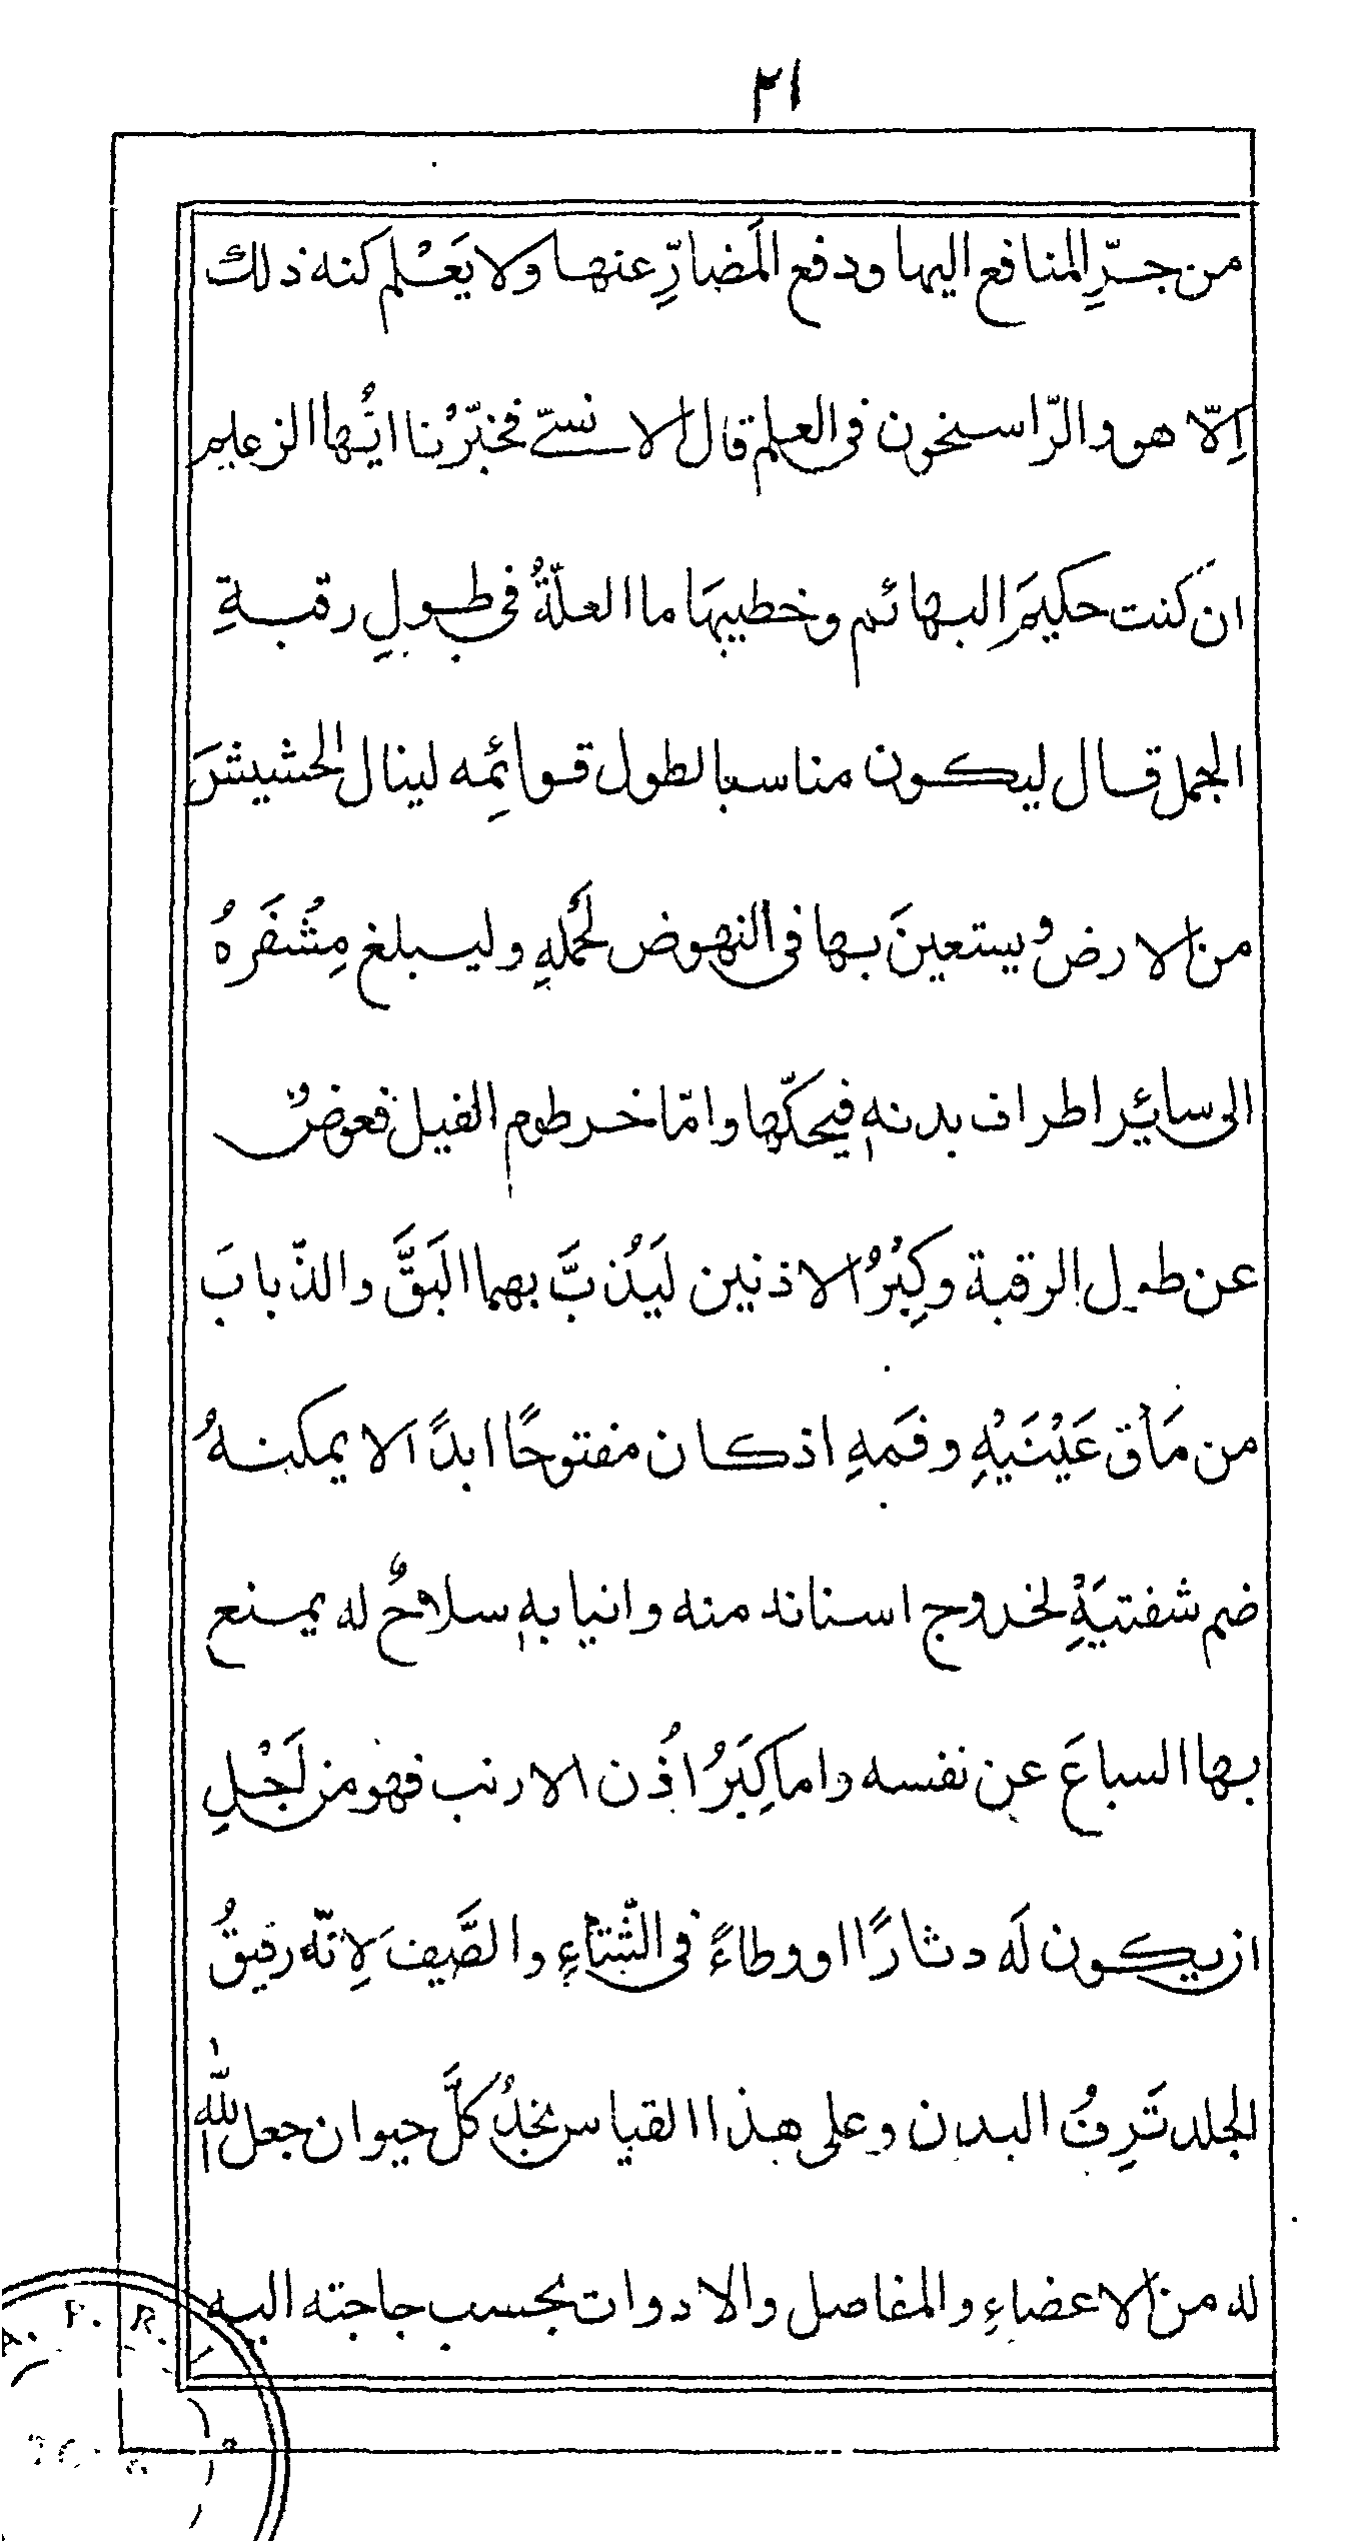 ٢١
من جرِّ المنافع اليها ودفع المَضارِّ عنها ولا يَعْلم كنه ذلك
اِلّا هو والرّاسخون فى العلم قال الانسىّ فخبّرْنا ايُّها الزعيم
ان كنت حكيمَ البهائم وخطيبهَا ما العلّةُ فى طولِ رقبةِ
الجمل قال ليكون مناسبا لطول قوائِمه لينال الحشيشَ
من الارض ويستعينَ بها فى النهوض لحَمْلهِ وليبلغ مِشْفَرهُ
الى سائِر اطراف بدنهٖ فيحكّها وامّا خرطوم الفيل فعوضٌ
عن طول الرقبة وكِبْرُ الاذنين ليَذُبَّ بهما البَقَّ والذّبابَ
من مَأق عَيْنَيْهِ وفَمهِ اذ كان مفتوحًا ابدًا لا يمكنهُ
ضم شفتيَهْ لخروج اسنانه منه وانيابهٖ سلاحٌ له يمنع
بها السباعَ عن نفسه واما كِبَرُ اذُن الارنب فهو من اَجْلِ
ان يكون لَه دثارًا او وطاءً فى الشّتاءِ والصَّيف لِانّه رقيقُ
الجلد تَرِفُ البدن وعلى هذا القياس نجدُ كلَّ حيوان جعل الله
له من الاعضاءِ والمفاصل والادوات بحسب حاجته اليه
A. P. R.